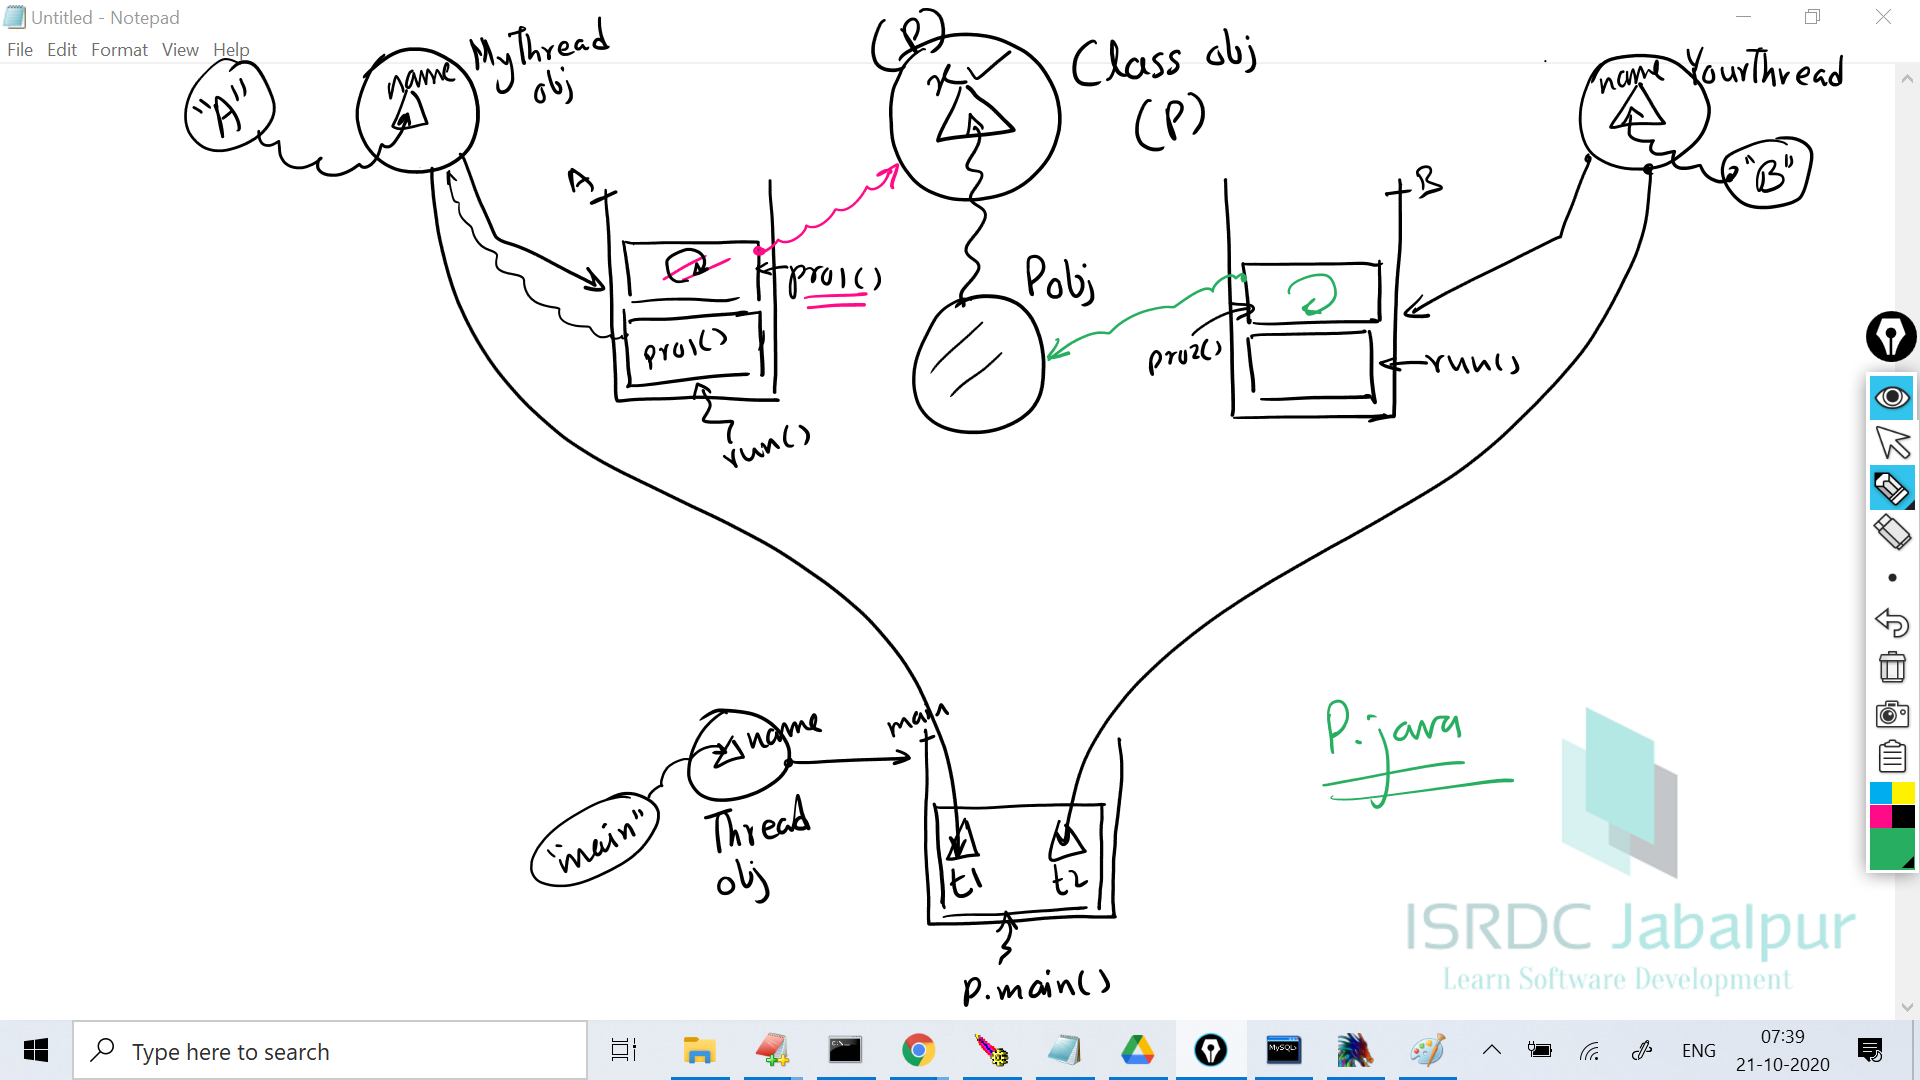 Untitled - Notepad
File Edit Format View Help
"A"
name
MyThread
obj
(P)
x
Class obj
(P)
name
YourThread
"B"
A
B
pro1()
pro1()
run()
Pobj
pro2()
run()
main
name
"main"
Thread
obj
t1
t2
P.main()
P.java
ISRDC Jabalpur
Learn Software Development
Type here to search
C:\_
MySQL
ENG
07:39
21-10-2020